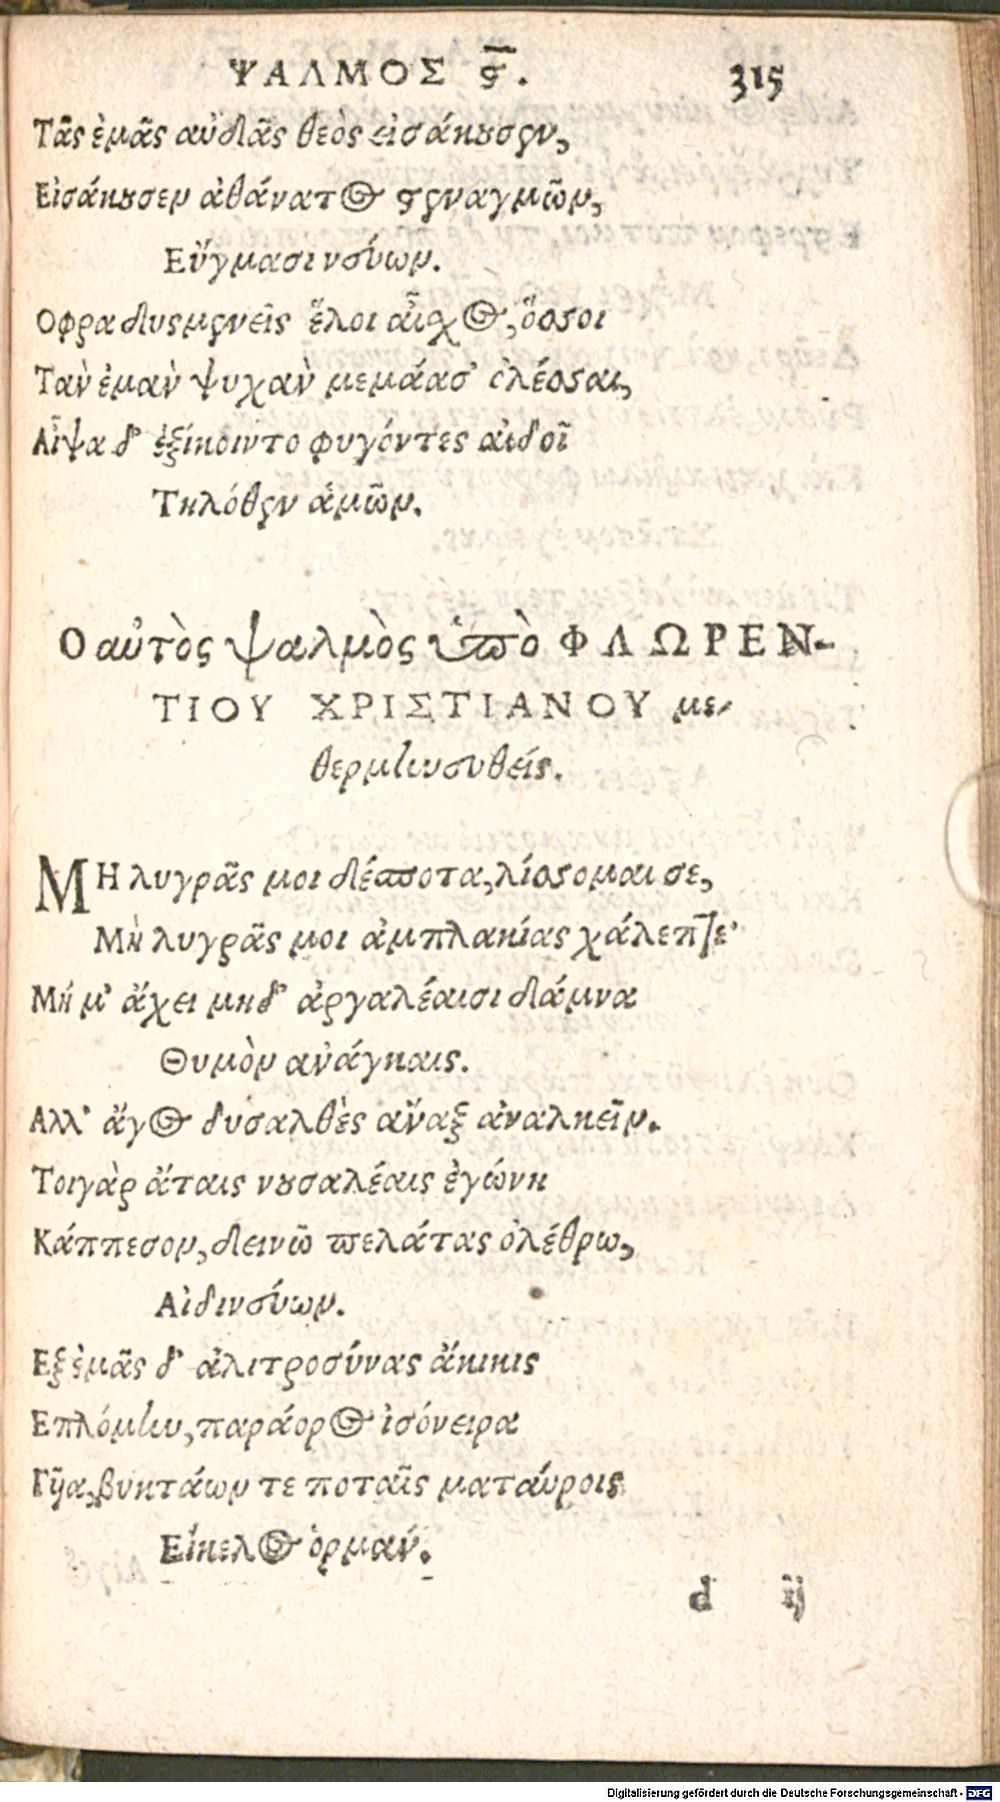 ΨΑΛΜΟΣ ϛ̅. 315
Τᾶς ἐμᾶς αὐδᾶς θεὸς εἰσάκουσεν,
Εἰσάκουσεν ἀθάνατος στεναγμῶν,
Εὔγμασιν σύων.
Οφρα δυσμενεῖς ἕλοι αἶσχος, ὅσσοι
Ταν ἐμὰν ψυχὰν μεμάασ' ὀλέσσαι,
Αἶψα δ' ἐξίκοιντο φυγόντες αἰδοῖ
Τηλόθεν ἁμῶν.
Ο αὐτὸς ψαλμὸς ὑπὸ ΦΛΩΡΕΝ-
ΤΙΟΥ ΧΡΙΣΤΙΑΝΟΥ με-
θερμηνευθείς.
ΜΗ λυγρᾶς μοι δέσποτα, λίσσομαι σε,
Μὴ λυγρᾶς μοι ἀμπλακίας χάλεπτε·
Μή μ' ἄχει μηδ' ἀργαλέαισι δάμνα
Θυμὸν ἀνάγκαις.
Αλλ' ἄγος δυσαλθὲς ἄναξ ἀναλκεῖν.
Τοιγὰρ ἄταις νουσαλέαις ἐγώνη
Κάππεσον, δεινῶ πελάτας ὀλέθρω,
Αἰδιν σύων.
Εξ ἐμᾶς δ' ἀλιτροσύνας ἄκικις
Επλόμην, παράορος ἰσόνειρα
Γῦα, βυκτάων τε ποταῖς ματαύροις
Εἴκελος ὁρμάν.
d ij
Digitalisierung gefördert durch die Deutsche Forschungsgemeinschaft - DFG